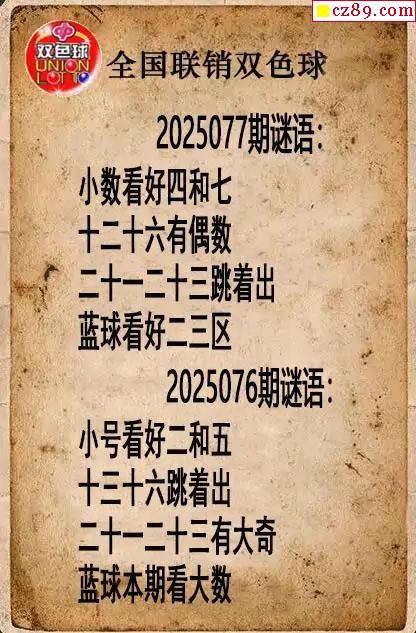 cz89.com
双色球
UNION
LOTTO
全国联销双色球
2025077期谜语：
小数看好四和七
十二十六有偶数
二十一二十三跳着出
蓝球看好二三区
2025076期谜语：
小号看好二和五
十三十六跳着出
二十一二十三有大奇
蓝球本期看大数